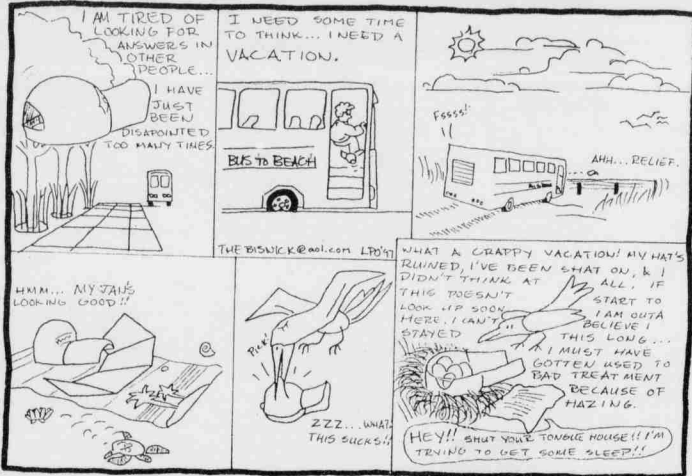 I AM TIRED OF
LOOKING FOR
ANSWERS IN
OTHER
PEOPLE...
I HAVE
JUST
BEEN
DISAPOINTED
TOO MANY TIMES.
I NEED SOME TIME
TO THINK... I NEED A
VACATION.
BUS TO BEACH
THEBISNICK@aol.com LPD'97
Fssss!
AHH... RELIEF.
HMM... MY TAN'S
LOOKING GOOD!!
PICK!
ZZZ...WHAT!
THIS SUCKS!!
WHAT A CRAPPY VACATION! MY HAT'S
RUINED, I'VE BEEN SHAT ON, & I
DIDN'T THINK AT ALL. IF
THIS DOESN'T START TO
LOOK UP SOON I AM OUTA
HERE. I CAN'T BELIEVE I
STAYED THIS LONG...
I MUST HAVE
GOTTEN USED TO
BAD TREATMENT
BECAUSE OF
HAZING.
HEY!! SHUT YOUR TONGUE HOUSE!! I'M
TRYING TO GET SOME SLEEP!!